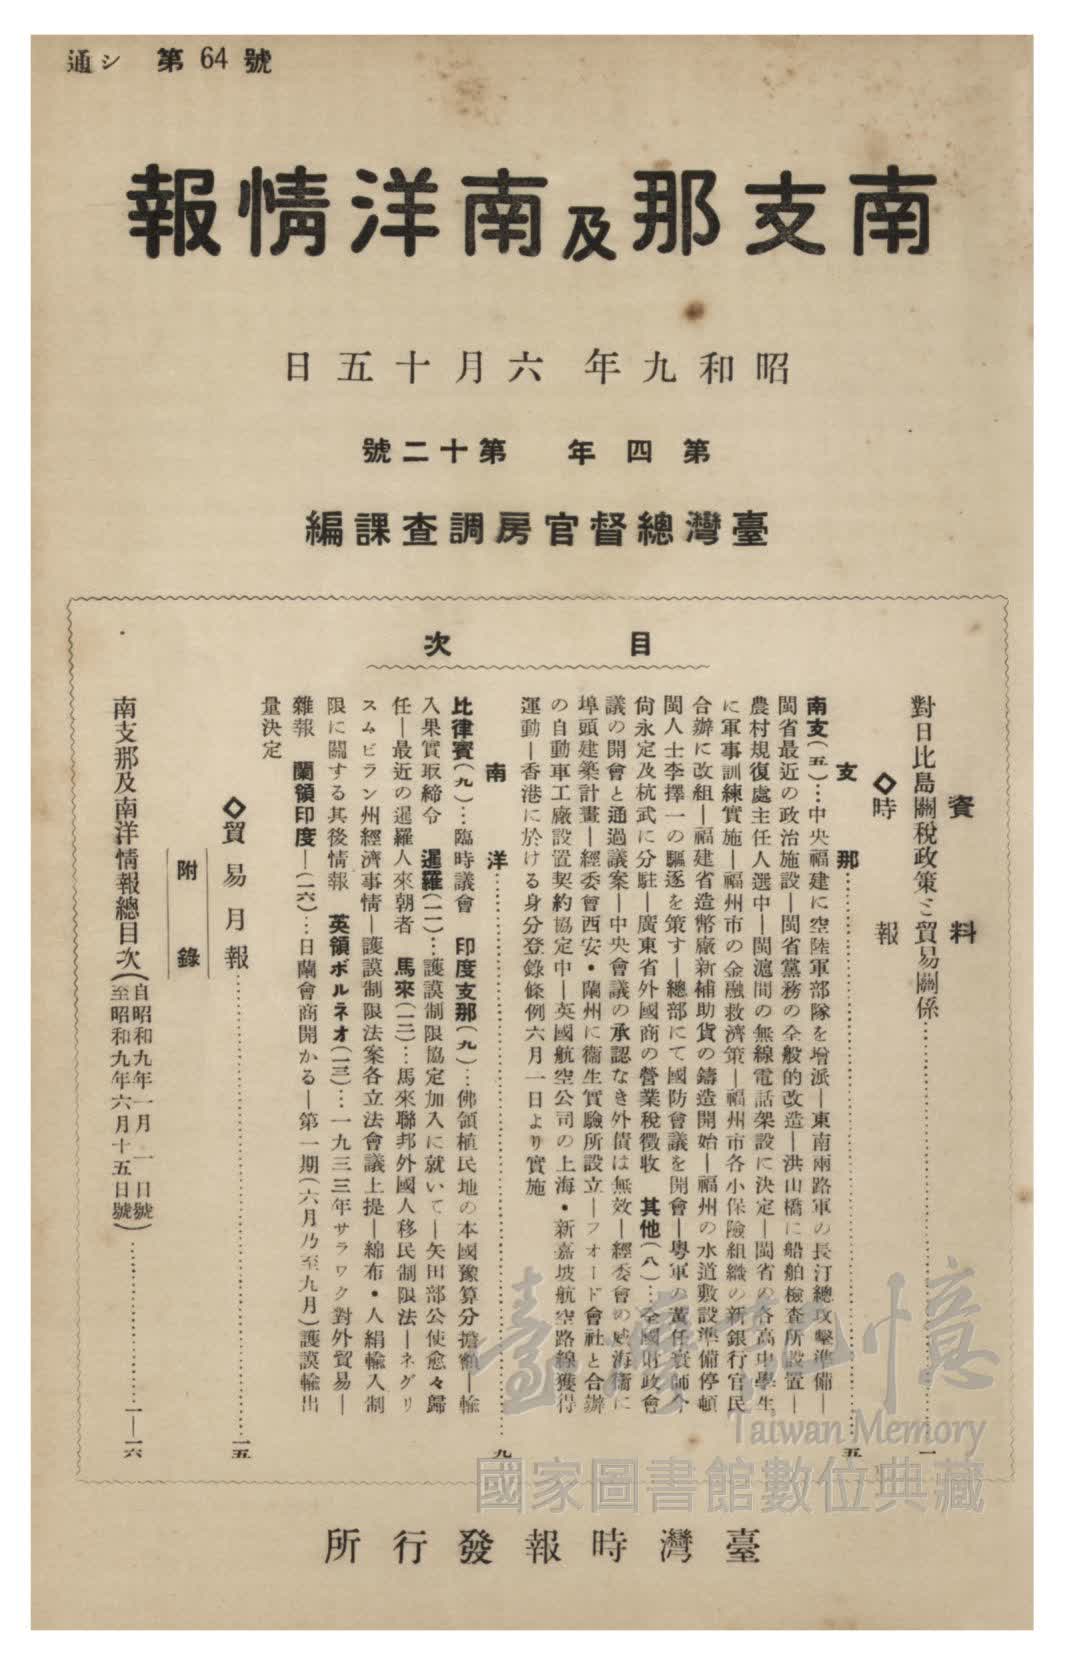 通シ 第 64 號
南支那及南洋情報
昭和九年 六月十五日
第四年 第十二號
臺灣總督官房調査課編
目次
資料
對日比島關稅政策と貿易關係……一
◇時報
支那……五
南支(五)…中央福建に空陸軍部隊を增派―東南兩路軍の長汀總攻擊準備―
閩省最近の政治施設―閩省黨務の全般的改造―洪山橋に船舶檢査所設置―
農村規復處主任人選中―閩滬間の無線電話架設に決定―閩省の各高中學生
に軍事訓練實施―福州市の金融救濟策―福州市各小保險組織の新銀行官民
合辦に改組―福建省造幣廠新補助貨の鑄造開始―福州の水道敷設準備停頓
閩人士李擇一の驅逐を策す―總部にて國防會議を開會―粵軍の黃任寰師今
尙永定及杭武に分駐―廣東省外國商の營業稅徵收 其他(八)…全國財政會
議の開會と通過議案―中央會議の承認なき外債は無效―經委會の威海衞に
埠頭建築計畫―經委會西安・蘭州に衞生實驗所設立―フオード會社と合辦
の自動車工廠設置契約協定中―英國航空公司の上海・新嘉坡航空路線獲得
運動―香港に於ける身分登錄條例六月一日より實施
南洋……九
比律賓(九)…臨時議會 印度支那(九)…佛領植民地の本國豫算分擔額―輸
入果實取締令 暹羅(一一)…護謨制限協定加入に就いて―矢田部公使愈々歸
任―最近の暹羅人來朝者 馬來(一二)…馬來聯邦外國人移民制限法―ネグリ
スムビラン州經濟事情―護謨制限法案各立法會議上提―綿布・人絹輸入制
限に關する其後情報 英領ボルネオ(一三)…一九三三年サラワク對外貿易―
雜報 蘭領印度―(一六)…日蘭會商開かる―第一期(六月乃至九月)護謨輸出
量決定
◇貿易月報……一五
附錄
南支那及南洋情報總目次(自昭和九年一月一日號
至昭和九年六月十五日號)……一―一六
臺灣時報發行所
臺灣記憶
Taiwan Memory
國家圖書館數位典藏